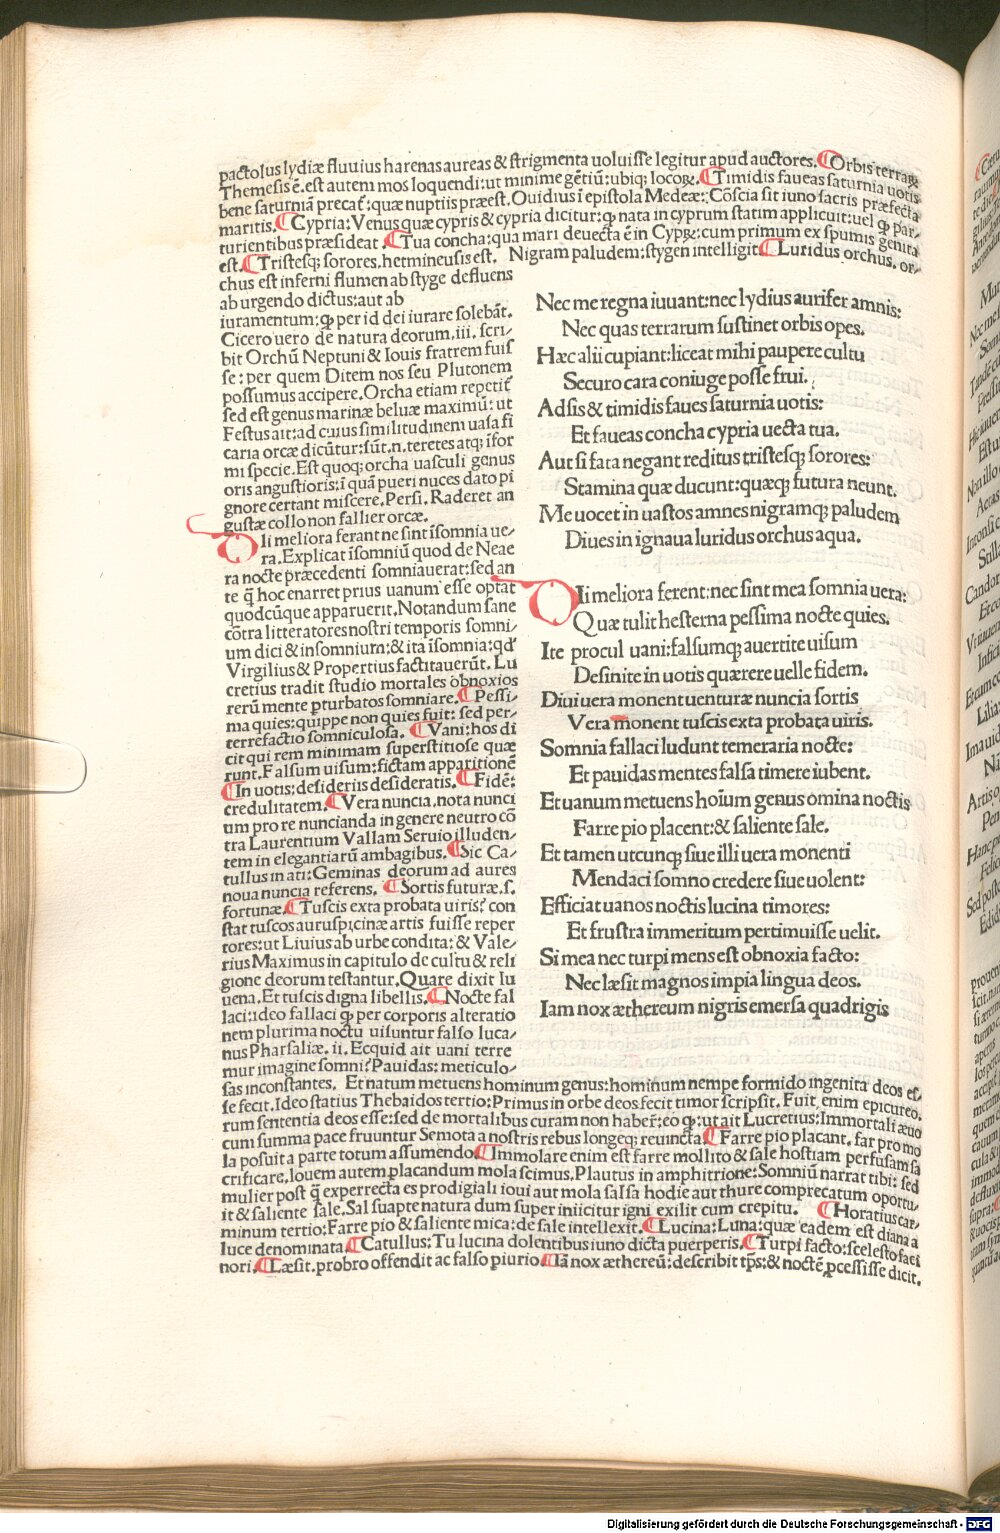 pactolus lydiæ fluuius harenas aureas & strigmenta uoluisse legitur apud auctores. ¶ Orbis terraꝝ
Themesis ē. est autem mos loquendi: ut minime gētiū: ubiqȝ locoꝝ. ¶ Timidis faueas saturnia uotis
bene saturniā precat̄: quæ nuptiis præest. Ouidius ī epistola Medeæ: Cōscia sit iuno sacris præfecta
maritis. ¶ Cypria: Venus quæ cypris & cypria dicitur: ꝙ nata in cyprum statim applicuit: uel ꝙ par⸗
turientibus præsideat. ¶ Tua concha: qua mari deuecta ē in Cypꝝ: cum primum ex spumis genita
est. ¶ Tristesqȝ sorores. hetmineusis est. Nigram paludem: stygen intelligit ¶ Luridus orchus. or⸗
chus est inferni flumen ab styge defluens
ab urgendo dictus: aut ab
iuramentum: ꝙ per id dei iurare solebāt.
Cicero uero de natura deorum. iii. scri⸗
bit Orchū Neptuni & Iouis fratrem fuis
se: per quem Ditem nos seu Plutonem
possumus accipere. Orcha etiam repetit̄
sed est genus marinæ beluæ maximū: ut
Festus ait: ad cuius similitudinem uasa fi
caria orcæ dicūtur: sūt. n. teretes atqȝ ifor
mi specie. Est quoqȝ orcha uasculi genus
oris angustioris: ī quā pueri nuces dato pi
gnore certant miscere. Persi. Raderet an
gustæ collo non fallier orcæ.
DIi meliora ferant ne sint isomnia ue⸗
ra. Explicat isomniū quod de Neae
ra nocte præcedenti somniauerat: sed an
te q̄ hoc enarret prius uanum esse optat
quodcūque apparuerit. Notandum sane
cōtra litteratores nostri temporis somni⸗
um dici & insomnium: & ita isomnia: qď
Virgilius & Propertius factitauerūt. Lu
cretius tradit studio mortales obnoxios
rerū mente pturbatos somniare. ¶ Pessi⸗
ma quies: quippe non quies fuit: sed per⸗
terrefactio somniculosa. ¶ Vani: hos di
cit qui rem minimam superstitiose quæ
runt. Falsum uisum: fictam apparitionē
¶ In uotis: desideriis desideratis. ¶ Fidē:
credulitatem. ¶ Vera nuncia. nota nunci
um pro re nuncianda in genere neutro cō
tra Laurentium Vallam Seruio illuden⸗
tem in elegantiarū ambagibus. ¶ Sic Ca⸗
tullus in ati: Geminas deorum ad aures
noua nuncia referens. ¶ Sortis futuræ. s.
fortunæ. ¶ Tuscis exta probata uiris: con
stat tuscos auruspicinæ artis fuisse reper
tores: ut Liuius ab urbe condita: & Vale⸗
rius Maximus in capitulo de cultu & reli
gione deorum testantur. Quare dixit Iu
uena. Et tuscis digna libellis. ¶ Nocte fal
laci: ideo fallaci ꝙ per corporis alteratio
nem plurima noctu uisuntur falso luca⸗
nus Pharsaliæ. ii. Ecquid ait uani terre
mur imagine somni? Pauidas: meticulo⸗
sas inconstantes. Et natum metuens hominum genus: hominum nempe formido ingenita deos es⸗
se fecit. Ideo statius Thebaidos tertio: Primus in orbe deos fecit timor scripsit. Fuit enim epicureo⸗
rum sententia deos esse: sed de mortalibus curam non haber̄: eo ꝙ: ut ait Lucretius: Immortali æuo
cum summa pace fruuntur Semota a nostris rebus longeqȝ reuincta ¶ Farre pio placant. far pro mo
la posuit a parte totum assumendo ¶ Immolare enim est farre mollito & sale hostiam perfusam sa
crificare. Iouem autem placandum mola scimus. Plautus in amphitrione: Somniū narrat tibi: sed
mulier post q̄ experrecta es prodigiali ioui aut mola salsa hodie aut thure comprecatum oportu⸗
it & saliente sale. Sal suapte natura dum super iniicitur igni exilit cum crepitu. ¶ Horatius car⸗
minum tertio: Farre pio & saliente mica: de sale intellexit. ¶ Lucina: Luna: quæ eadem est diana a
luce denominata ¶ Catullus: Tu lucina dolentibus iuno dicta puerperis. ¶ Turpi facto: scelesto faci
nori. ¶ Læsit. probro offendit ac falso piurio ¶ Iā nox æthereū: describit tp̄s: & noctē ꝓcessisse dicit.
Nec me regna iuuant: nec lydius aurifer amnis:
Nec quas terrarum sustinet orbis opes.
Hæc alii cupiant: liceat mihi paupere cultu
Securo cara coniuge posse frui.
Adsis & timidis faues saturnia uotis:
Et faueas concha cypria uecta tua.
Aut si fata negant reditus tristesqȝ sorores:
Stamina quæ ducunt: quæqȝ futura neunt.
Me uocet in uastos amnes nigramqȝ paludem
Diues in ignaua luridus orchus aqua.
DIi meliora ferent: nec sint mea somnia uera:
Quæ tulit hesterna pessima nocte quies.
Ite procul uani: falsumqȝ auertite uisum
Desinite in uotis quærere uelle fidem.
Diui uera monent uenturæ nuncia sortis
Vera monent tuscis exta probata uiris.
Somnia fallaci ludunt temeraria nocte:
Et pauidas mentes falsa timere iubent.
Et uanum metuens hoīum genus omina noctis
Farre pio placent: & saliente sale.
Et tamen utcunqȝ siue illi uera monenti
Mendaci somno credere siue uolent:
Efficiat uanos noctis lucina timores:
Et frustra immeritum pertimuisse uelit.
Si mea nec turpi mens est obnoxia facto:
Nec læsit magnos impia lingua deos.
Iam nox æthereum nigris emersa quadrigis
Digitalisierung gefördert durch die Deutsche Forschungsgemeinschaft - DFG